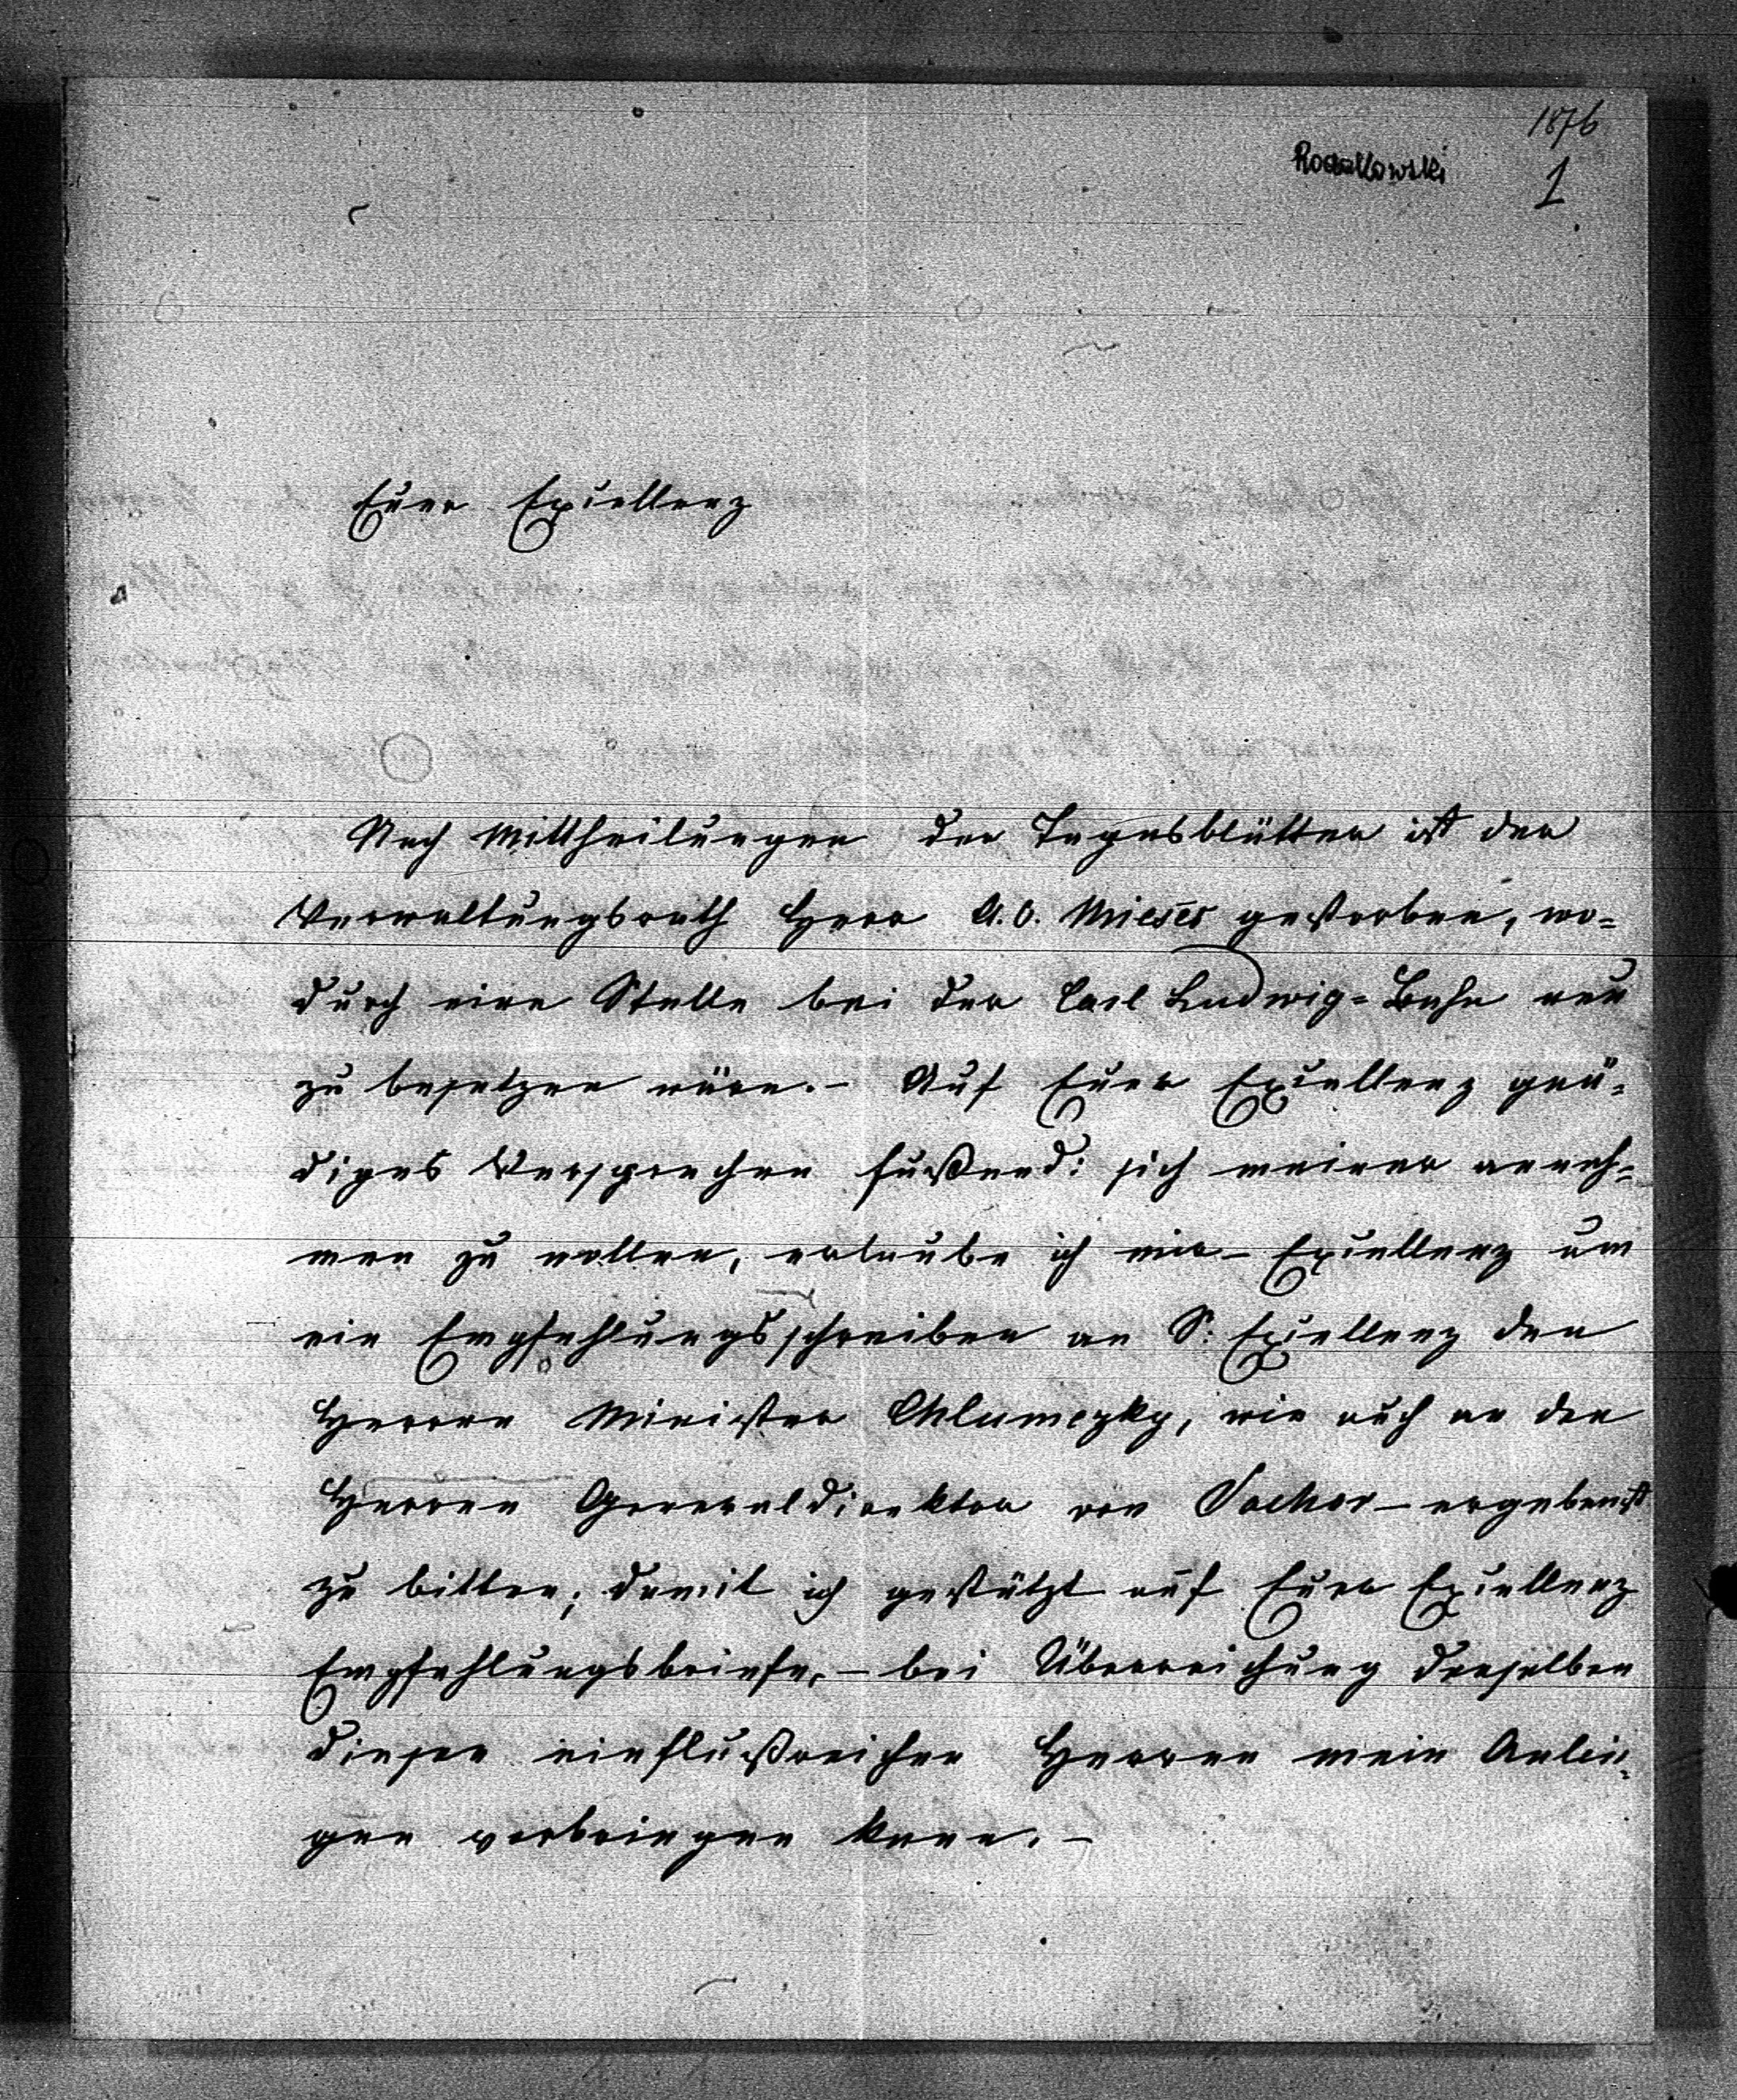 1876
1
Euer Exzellenz
Nach Mittheilungen der Tagesblätter ist der
Verwaltungsrath Herr A. O. Mieses gestorben, wo=
durch eine Stelle bei der Carl Ludwig=Bahn neu
zu besetzen wäre.– Auf Euer Exzellenz gnä=
diges Versprechen fußend: sich meiner anneh=
men zu wollen, erlaube ich mir – Exzellenz um
ein Empfehlungsschreiben an S: Exzellenz den
Herren Minister Chlumezky, wie auch an den
Herren Generaldirektor von Sochor – ergebenst
zu bitten; damit ich gestützt auf Euer Exzellenz
Empfehlungsbriefe, – bei Überreichung derselben
diesen einflußreichen Herren mein Anlie=
gen vorbringen kann. –